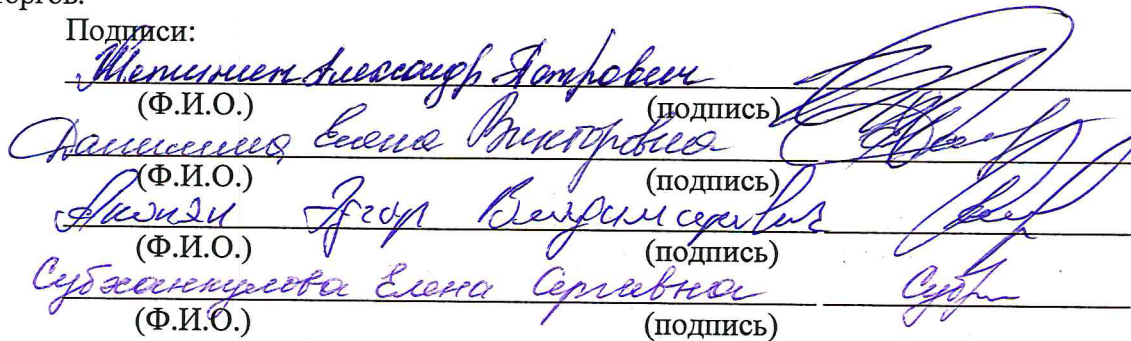 торгов.
Подписи:
Александр Петрович
(Ф.И.О.) (подпись)
Данилина Елена Викторовна
(Ф.И.О.) (подпись)
Акопян Эдгар Владимирович
(Ф.И.О.) (подпись)
Субханкулова Елена Сергеевна
(Ф.И.О.) (подпись)